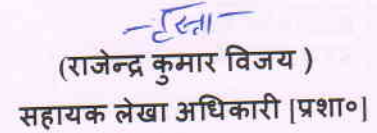 -हस्ता-
(राजेन्द्र कुमार विजय )
सहायक लेखा अधिकारी [प्रशा०]